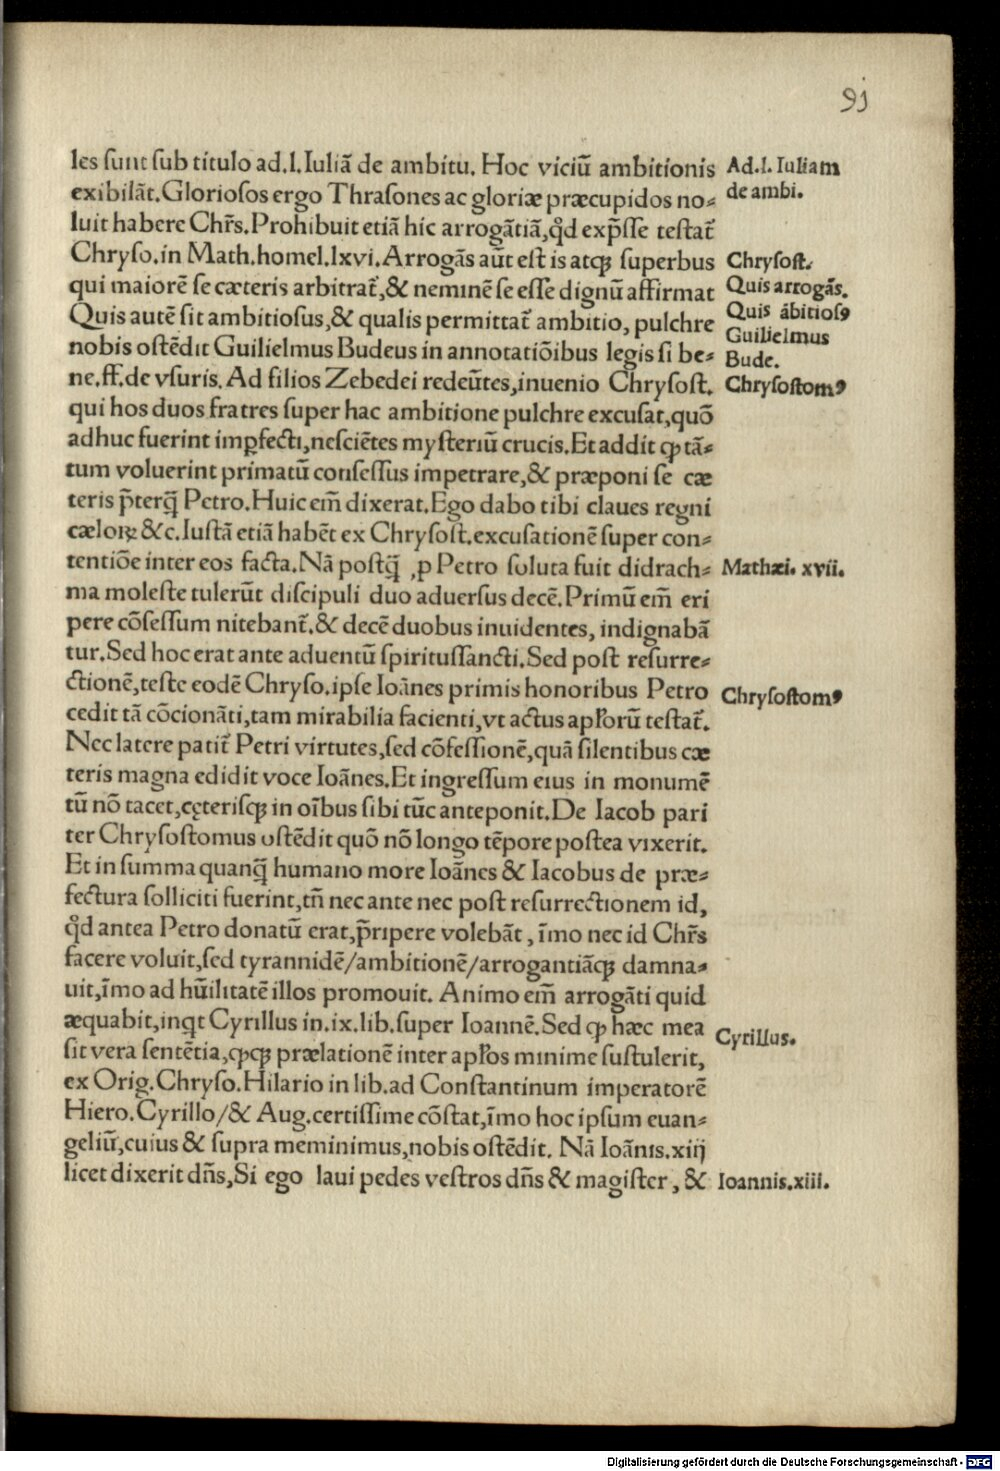 91
les sunt sub titulo ad.l.Iuliā de ambitu. Hoc viciū ambitionis
exibilāt.Gloriosos ergo Thrasones ac gloriæ præcupidos no⸗
luit habere Chr̄s.Prohibuit etiā hic arrogātiā,qd̄ exp̄sse testat᷑
Chryso.in Math.homel.lxvi.Arrogās aūt est is atq; superbus
qui maiorē se cæteris arbitrat᷑,& neminē se esse dignū affirmat
Quis autē sit ambitiosus,& qualis permittat᷑ ambitio, pulchre
nobis ostēdit Guilielmus Budeus in annotatiōibus legis si be⸗
ne.ff.de vsuris. Ad filios Zebedei redeūtes,inuenio Chrysost.
qui hos duos fratres super hac ambitione pulchre excusat,quō
adhuc fuerint imꝑfecti,nesciētes mysteriū crucis.Et addit ꝙ tā⸗
tum voluerint primatū consessus impetrare,& præponi se cæ
teris p̄terq̄ Petro.Huic em̄ dixerat.Ego dabo tibi claues regni
cæloꝝ &c.Iustā etiā habēt ex Chrysost.excusationē super con⸗
tentiōe inter eos facta.Nā postq̄ ,p Petro soluta fuit didrach⸗
ma moleste tulerūt discipuli duo aduersus decē.Primū em̄ eri
pere cōsessum nitebant᷑.& decē duobus inuidentes, indignabā
tur.Sed hoc erat ante aduentū spiritussancti.Sed post resurre⸗
ctionē,teste eodē Chryso.ipse Ioānes primis honoribus Petro
cedit tā cōcionāti,tam mirabilia facienti,vt actus apl̄orū testat᷑.
Nec latere patit᷑ Petri virtutes,sed cōfessionē,quā silentibus cæ
teris magna edidit voce Ioānes.Et ingressum eius in monumē
tū nō tacet,cęterisq; in oībus sibi tūc anteponit.De Iacob pari
ter Chrysostomus ostēdit quō nō longo tēpore postea vixerit.
Et in summa quanq̄ humano more Ioānes & Iacobus de præ⸗
fectura solliciti fuerint,tn̄ nec ante nec post resurrectionem id,
qd̄ antea Petro donatū erat,p̄ripere volebāt, īmo nec id Chr̄s
facere voluit,sed tyrannidē/ambitionē/arrogantiāq; damna⸗
uit,īmo ad hūilitatē illos promouit. Animo em̄ arrogāti quid
æquabit,inqt Cyrillus in.ix.lib.super Ioannē.Sed ꝙ hæc mea
sit vera sentētia,ꝙq; prælationē inter apl̄os minime sustulerit,
ex Orig.Chryso.Hilario in lib.ad Constantinum imperatorē
Hiero.Cyrillo/& Aug.certissime cōstat,īmo hoc ipsum euan⸗
geliū,cuius & supra meminimus,nobis ostēdit. Nā Ioānis.xiij
licet dixerit dn̄s,Si ego laui pedes vestros dn̄s & magister, &
Ad.l.Iuliam
de ambi.
Chrysost.
Quis arrogās.
Quis ābitiosꝰ
Guilielmus
Bude.
Chrysostomꝰ
Mathæi. xvii.
Chrysostomꝰ
Cyrillus.
Ioannis.xiii.
Digitalisierung gefördert durch die Deutsche Forschungsgemeinschaft - DFG